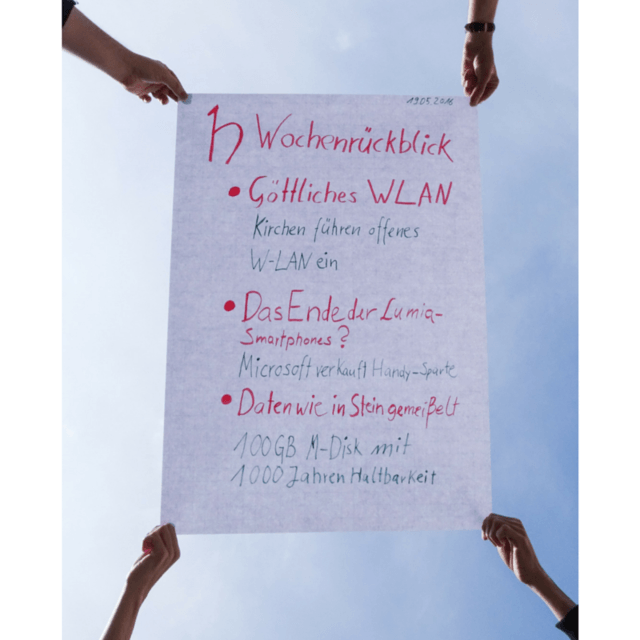 19.05.2016
h Wochenrückblick
• Göttliches WLAN
Kirchen führen offenes
W-LAN ein
• Das Ende der Lumia-
Smartphones?
Microsoft verkauft Handy-Sparte
• Daten wie in Stein gemeißelt
100GB M-Disk mit
1000 Jahren Haltbarkeit